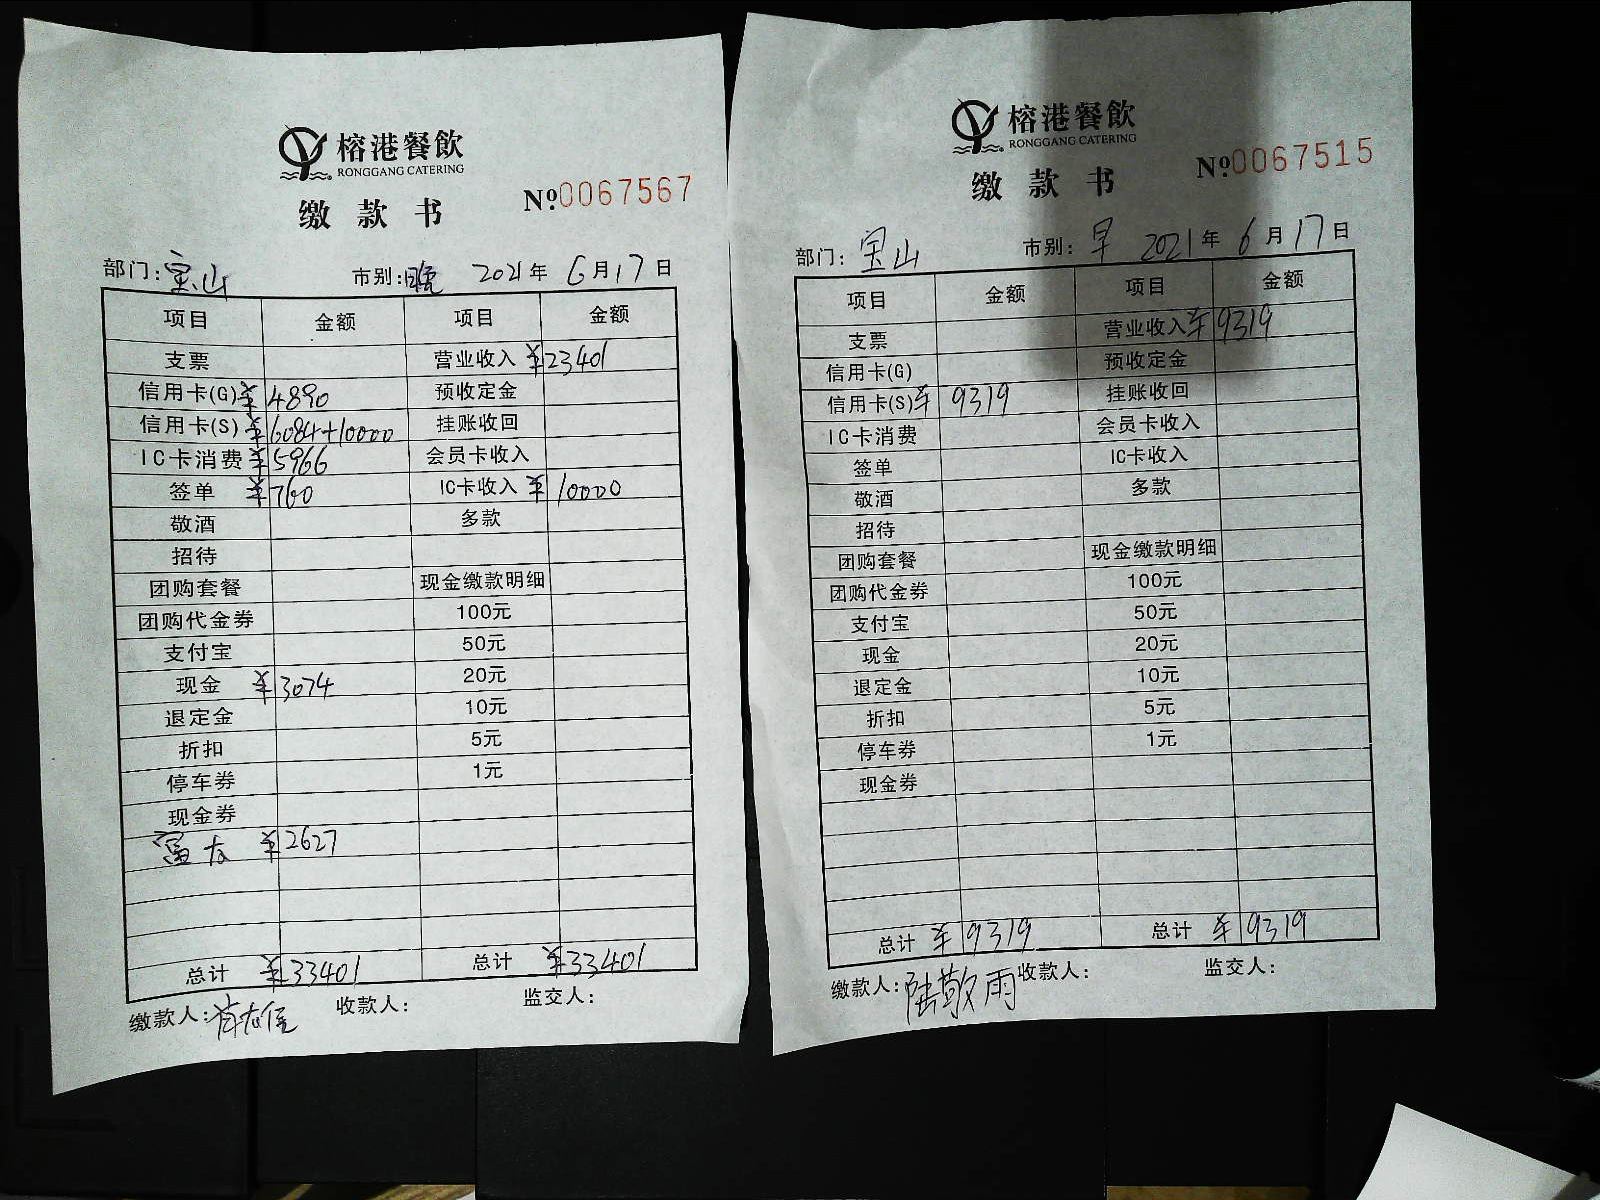 榕港餐飲
RONGGANG CATERING
缴款书
No 0067567
部门：宝山 市别：晚 2021年6月17日
项目 金额 项目 金额
支票 营业收入 ¥23401
信用卡(G) ¥4890 预收定金
信用卡(S) ¥6084+10000 挂账收回
IC卡消费 ¥5966 会员卡收入
签单 ¥760 IC卡收入 ¥10000
敬酒 多款
招待
团购套餐 现金缴款明细
团购代金券 100元
支付宝 50元
现金 ¥3074 20元
退定金 10元
折扣 5元
停车券 1元
现金券
富友 ¥2627
总计 ¥33401 总计 ¥33401
缴款人： 收款人： 监交人：
榕港餐飲
RONGGANG CATERING
缴款书
No 0067515
部门：宝山 市别：早 2021年6月17日
项目 金额 项目 金额
支票 营业收入 ¥9319
信用卡(G) 预收定金
信用卡(S) ¥9319 挂账收回
IC卡消费 会员卡收入
签单 IC卡收入
敬酒 多款
招待
团购套餐 现金缴款明细
团购代金券 100元
支付宝 50元
现金 20元
退定金 10元
折扣 5元
停车券 1元
现金券
总计 ¥9319 总计 ¥9319
缴款人：陆敬雨 收款人： 监交人：